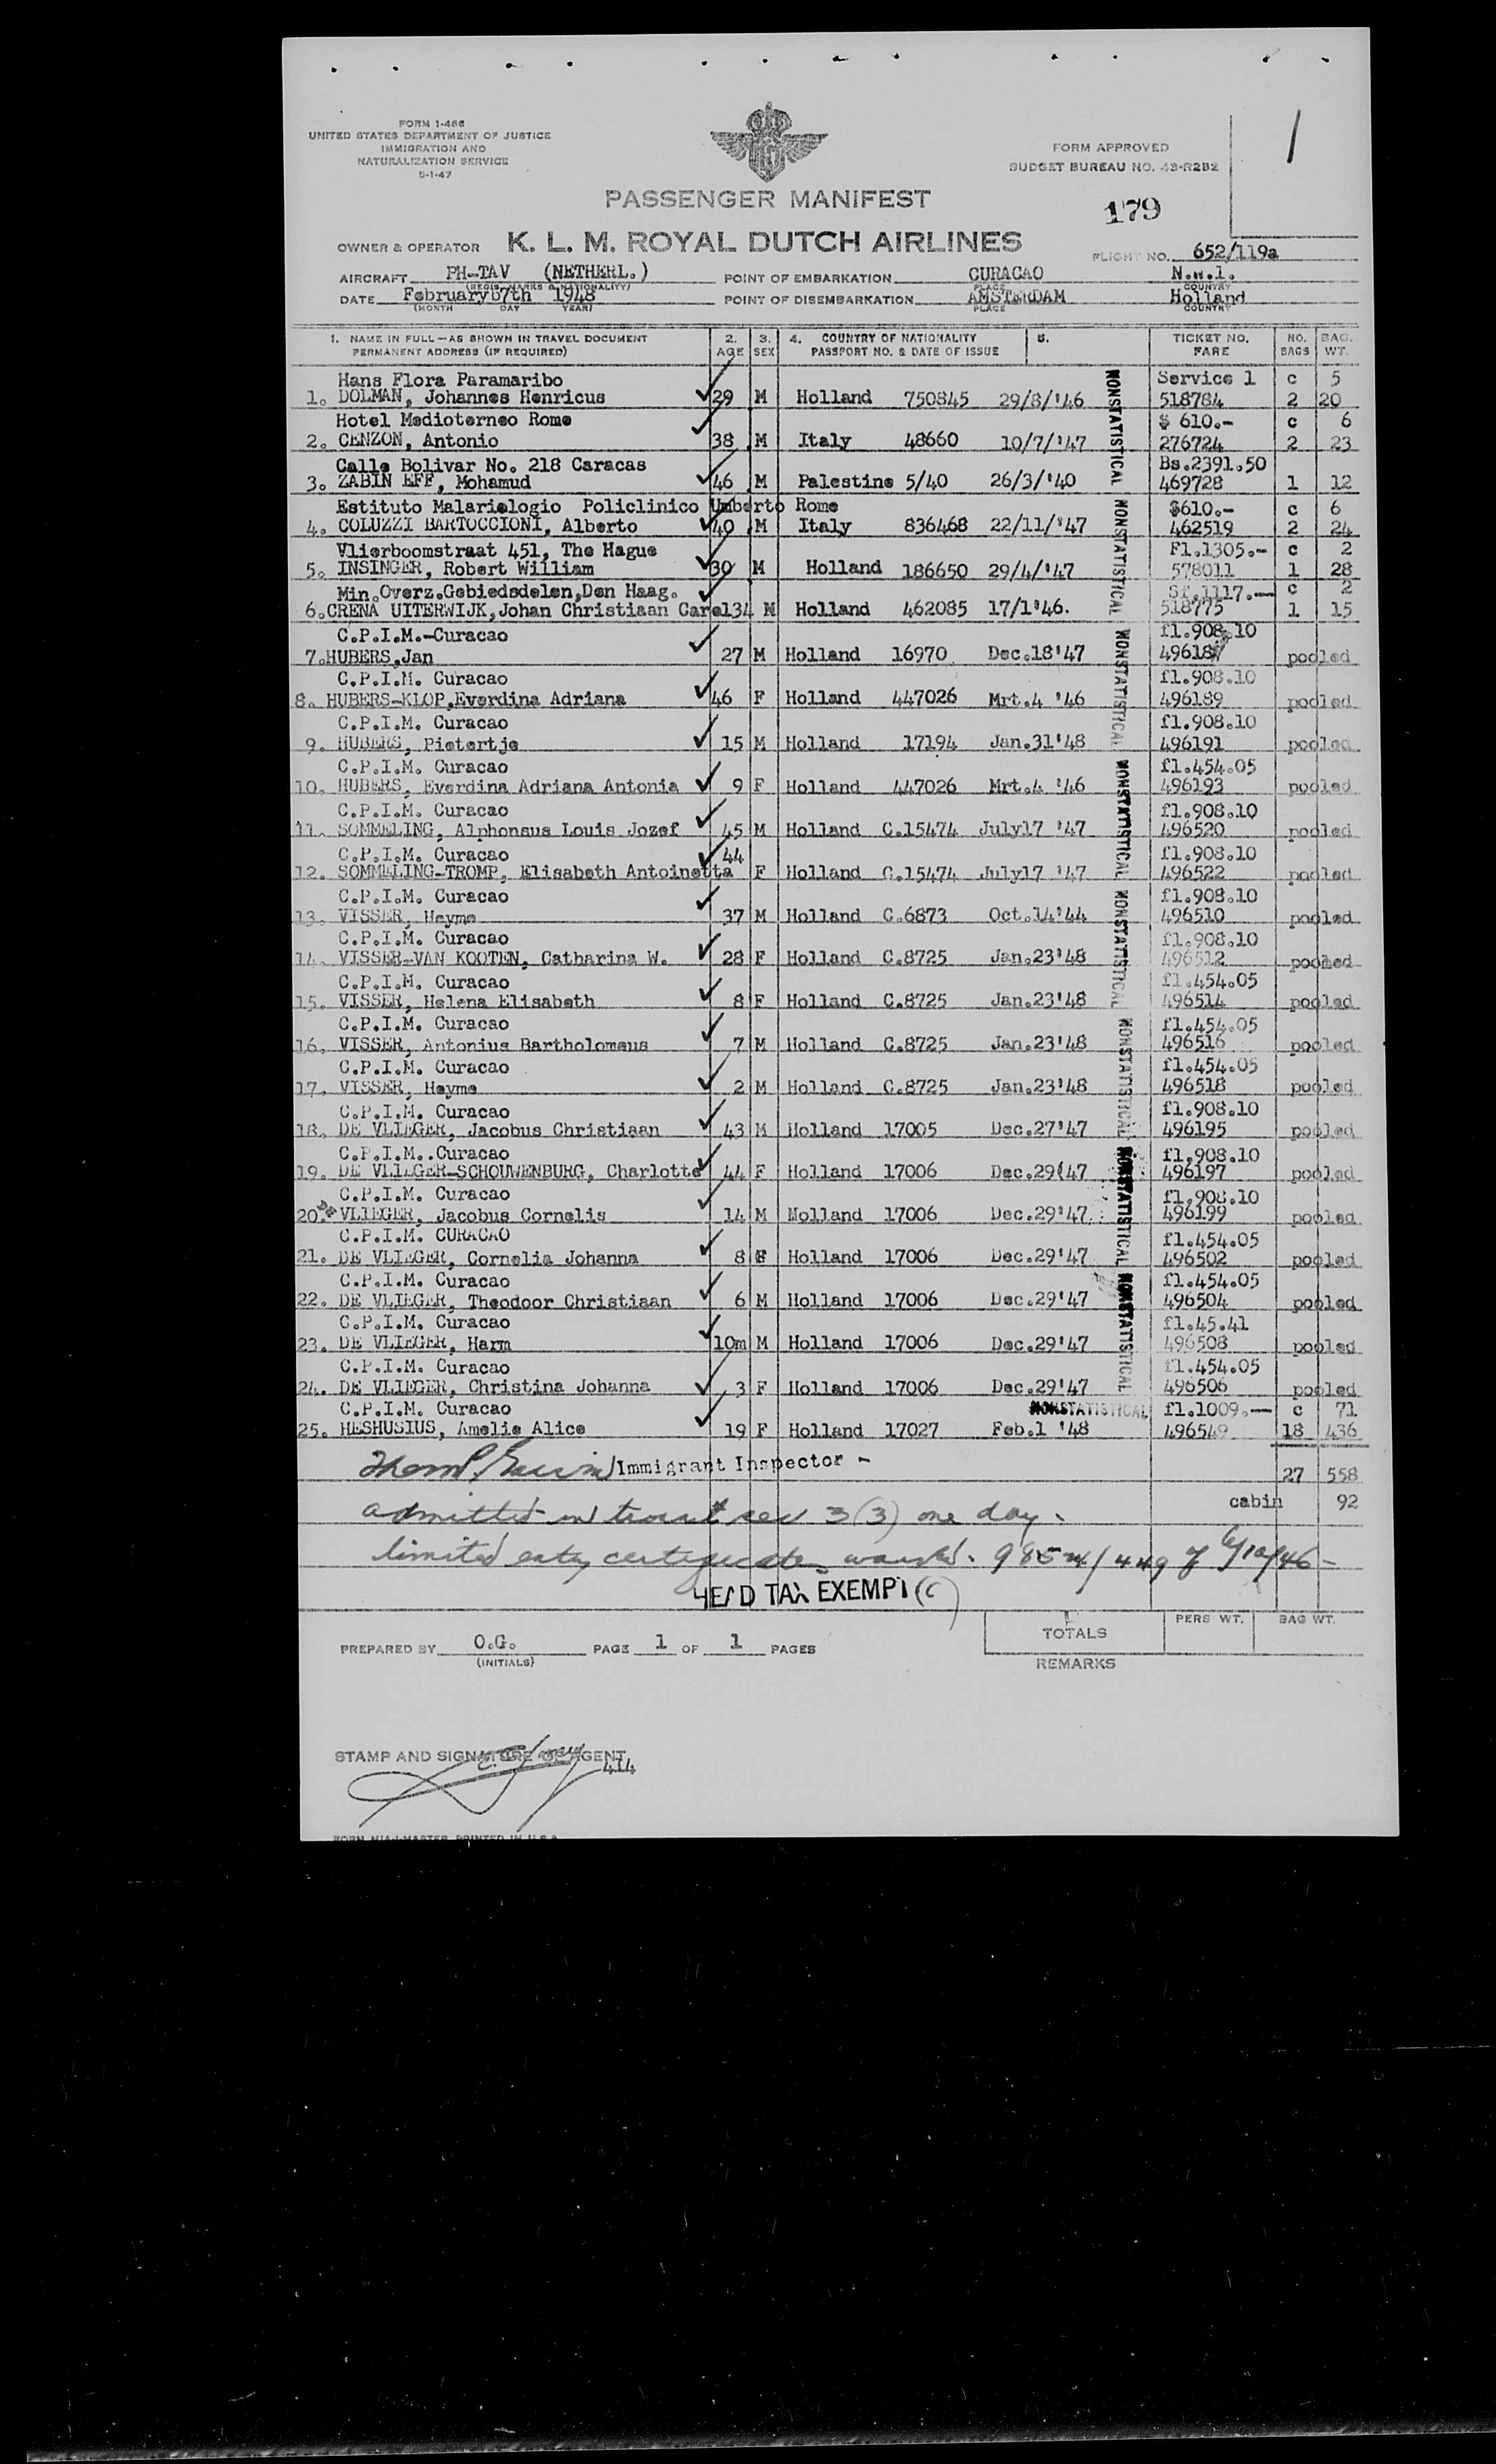 FORM 1-466
UNITED STATES DEPARTMENT OF JUSTICE
IMMIGRATION AND
NATURALIZATION SERVICE
5-1-47
FORM APPROVED
BUDGET BUREAU NO. 43-R282
1
PASSENGER MANIFEST
179
OWNER & OPERATOR K. L. M. ROYAL DUTCH AIRLINES
FLIGHT NO. 652/119a
AIRCRAFT PH-TAV (NETHERL.) POINT OF EMBARKATION CURACAO N.W.I.
(REGIS. MARKS & NATIONALITY) PLACE COUNTRY
DATE February 7th 1948 POINT OF DISEMBARKATION AMSTERDAM Holland
(MONTH DAY YEAR) PLACE COUNTRY
1. NAME IN FULL—AS SHOWN IN TRAVEL DOCUMENT 2. 3. 4. COUNTRY OF NATIONALITY 5. TICKET NO. NO. BAG.
PERMANENT ADDRESS (IF REQUIRED) AGE SEX PASSPORT NO. & DATE OF ISSUE FARE BAGS WT.
Hans Flora Paramaribo Service 1 c 5
1. DOLMAN, Johannes Henricus 29 M Holland 750845 29/8/'46 518784 2 20
Hotel Medioterneo Rome $ 610.- c 6
2. CENZON, Antonio 38 M Italy 48660 10/7/'47 276724 2 23
Calle Bolivar No. 218 Caracas Bs.2391.50
3. ZABIN EFF, Mohamud 46 M Palestine 5/40 26/3/'40 469728 1 12
Estituto Malariologio Policlinico Umberto Rome $610.- c 6
4. COLUZZI BARTOCCIONI, Alberto 40 M Italy 836468 22/11/'47 462519 2 24
Vlierboomstraat 451, The Hague Fl.1305.- c 2
5. INSINGER, Robert William 30 M Holland 186650 29/4/'47 578011 1 28
Min.Overz.Gebiedsdelen,Den Haag. Sf.1117.— c 2
6.CRENA UITERWIJK,Johan Christiaan Carel34 M Holland 462085 17/1'46. 518775 1 15
C.P.I.M.-Curacao fl.908.10
7.HUBERS,Jan 27 M Holland 16970 Dec.18'47 496187 pooled
C.P.I.M. Curacao fl.908.10
8. HUBERS-KLOP,Everdina Adriana 46 F Holland 447026 Mrt.4 '46 496189 pooled
C.P.I.M. Curacao fl.908.10
9. HUBERS, Pietertje 15 M Holland 17194 Jan.31'48 496191 pooled
C.P.I.M. Curacao fl.454.05
10. HUBERS, Everdina Adriana Antonia 9 F Holland 447026 Mrt.4 '46 496193 pooled
C.P.I.M. Curacao fl.908.10
11. SOMMELING, Alphonsus Louis Jozef 45 M Holland C.15474 July17 '47 496520 pooled
C.P.I.M. Curacao 44 fl.908.10
12. SOMMELING-TROMP, Elisabeth Antoinetta F Holland C.15474 July17 '47 496522 pooled
C.P.I.M. Curacao fl.908.10
13. VISSER, Heyme 37 M Holland C.6873 Oct.14'44 496510 pooled
C.P.I.M. Curacao fl.908.10
14. VISSER-VAN KOOTEN, Catharina W. 28 F Holland C.8725 Jan.23'48 496512 pooled
C.P.I.M. Curacao fl.454.05
15. VISSER, Helena Elisabeth 8 F Holland C.8725 Jan.23'48 496514 pooled
C.P.I.M. Curacao fl.454.05
16. VISSER, Antonius Bartholomeus 7 M Holland C.8725 Jan.23'48 496516 pooled
C.P.I.M. Curacao fl.454.05
17. VISSER, Heyme 2 M Holland C.8725 Jan.23'48 496518 pooled
C.P.I.M. Curacao fl.908.10
18. DE VLIEGER, Jacobus Christiaan 43 M Holland 17005 Dec.27'47 496195 pooled
C.P.I.M..Curacao fl.908.10
19. DE VLIEGER-SCHOUWENBURG, Charlotte 44 F Holland 17006 Dec.29(47 496197 pooled
C.P.I.M. Curacao fl.908.10
20. DE VLIEGER, Jacobus Cornelis 14 M Molland 17006 Dec.29'47 496199 pooled
C.P.I.M. CURACAO fl.454.05
21. DE VLIEGER, Cornelia Johanna 8 F Holland 17006 Dec.29'47 496502 pooled
C.P.I.M. Curacao fl.454.05
22. DE VLIEGER, Theodoor Christiaan 6 M Holland 17006 Dec.29'47 496504 pooled
C.P.I.M. Curacao fl.45.41
23. DE VLIEGER, Harm 10m M Holland 17006 Dec.29'47 496508 pooled
C.P.I.M. Curacao fl.454.05
24. DE VLIEGER, Christina Johanna 3 F Holland 17006 Dec.29'47 496506 pooled
C.P.I.M. Curacao NONSTATISTICAL fl.1009.— c 71
25. HESHUSIUS, Amelie Alice 19 F Holland 17027 Feb.1 '48 496549 18 436
NONSTATISTICAL NONSTATISTICAL NONSTATISTICAL NONSTATISTICAL NONSTATISTICAL NONSTATISTICAL NONSTATISTICAL NONSTATISTICAL
Immigrant Inspector - 27 558
admitted in transit sec 3(3) one day. cabin 92
limited entry certificates waived. 985 /449 of 6/10/46-
HEAD TAX EXEMPT (C)
TOTALS PERS WT. BAG WT.
PREPARED BY O.G. PAGE 1 OF 1 PAGES
(INITIALS) REMARKS
STAMP AND SIGNATURE OF AGENT
414